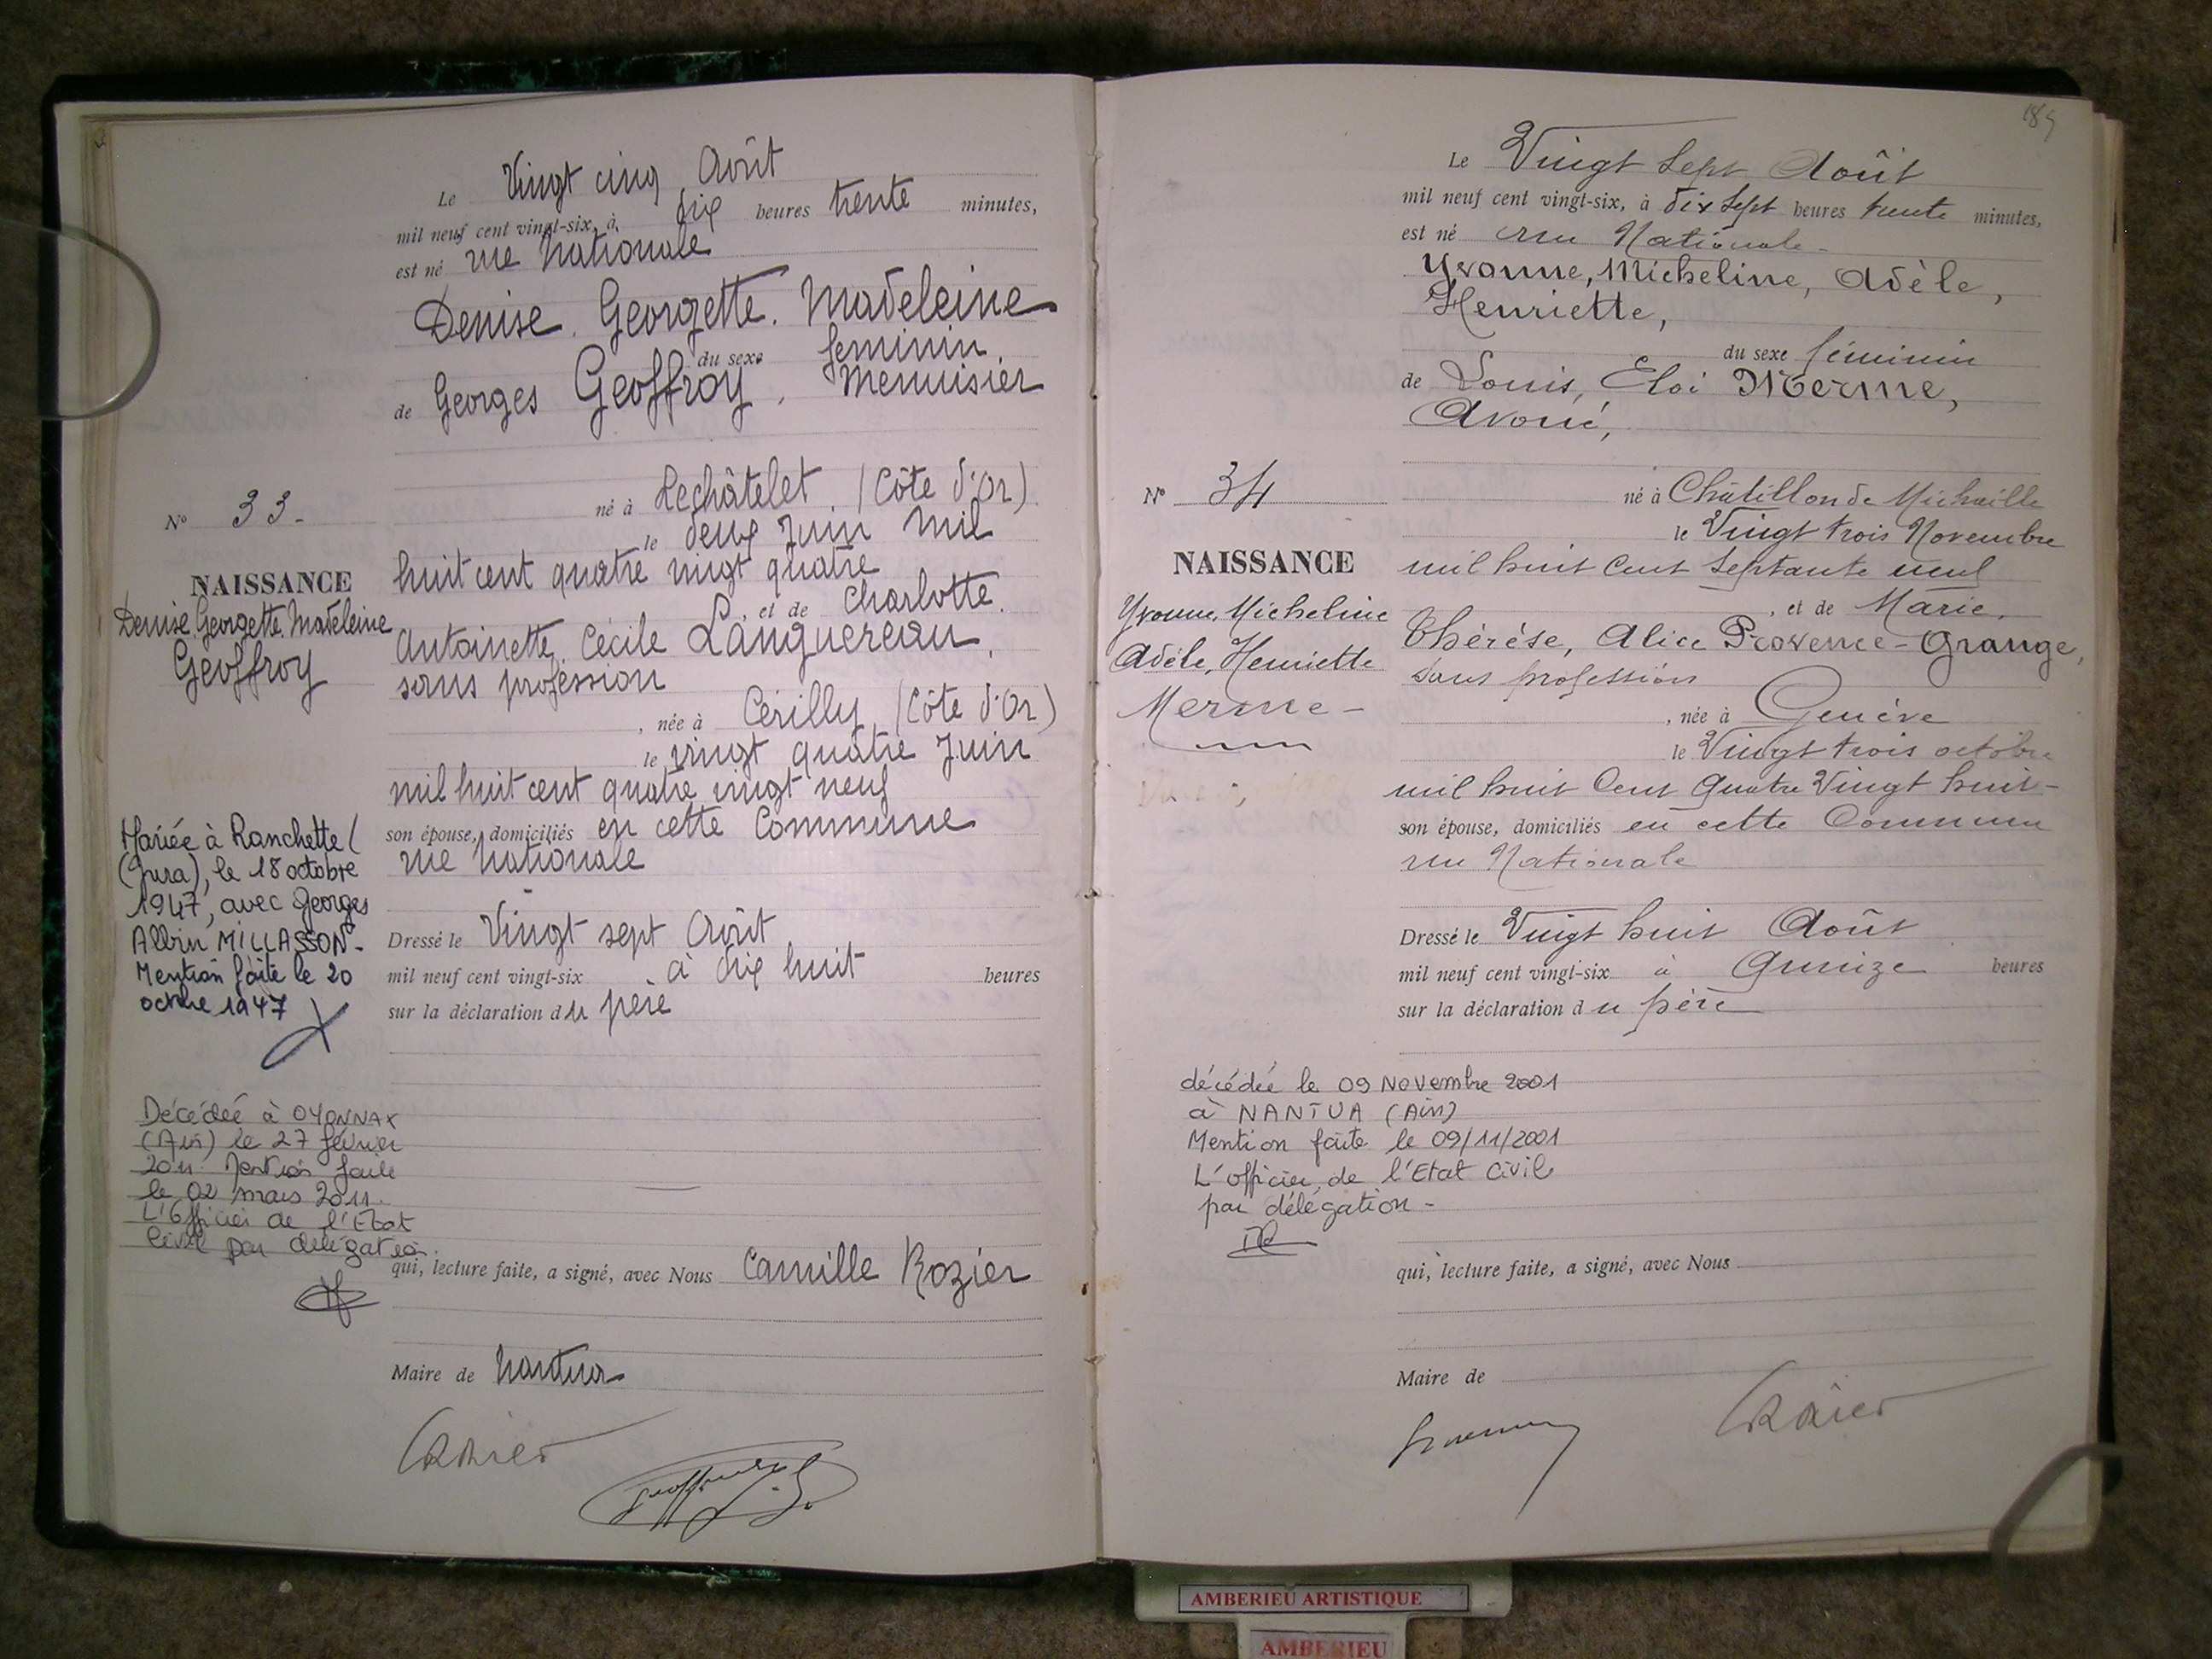 Le Vingt cinq Août
mil neuf cent vingt-six, à dix heures trente minutes,
est né rue Nationale
Denise. Georgette. Madeleine
du sexe feminin.
de Georges Geoffroy, Menuisier
né à Lechâtelet (Côte d'Or)
le deux Juin mil
huit cent quatre vingt quatre
, et de Charlotte.
Antoinette. Cécile Languereau,
sans profession
, née à Cérilly, (Côte d'Or)
le vingt quatre Juin
mil huit cent quatre vingt neuf
son épouse, domiciliés en cette Commune
rue Nationale
Dressé le Vingt sept Août
mil neuf cent vingt-six à dix huit heures
sur la déclaration du père
qui, lecture faite, a signé, avec Nous Camille Rozier
Maire de Nantua
N° 33.
NAISSANCE
Denise. Georgette. Madeleine
Geoffroy
Mariée à Ranchette (
(Jura), le 18 octobre
1947, avec Georges
Albin MILLASSON.
Mention faite le 20
octbre 1947
Décédée à OYONNAX
(Ain) le 27 février
2011. Mention faite
le 02 mars 2011.
L'Officier de l'Etat
Civil par délégation.
189
Le Vingt Sept Août
mil neuf cent vingt-six, à dix Sept heures trente minutes,
est né rue Nationale
Yvonne, Micheline, Adèle,
Henriette,
du sexe féminin
de Louis, Eloi Merme,
Avoué,
né à Châtillon de Michaille
le Vingt trois Novembre
mil huit Cent Septante neuf
, et de Marie,
Thérèse, Alice Provence-Grange,
Sans profession
, née à Genève
le Vingt trois octobre
mil huit Cent Quatre Vingt huit-
son épouse, domiciliés en cette Commune
rue Nationale
Dressé le Vingt huit Août
mil neuf cent vingt-six à Quinze heures
sur la déclaration du père
N° 34
NAISSANCE
Yvonne, Micheline
Adèle, Henriette
Merme-
décédée le 09 Novembre 2001
à NANTUA (Ain)
Mention faite le 09/11/2001
L'officier de l'Etat Civil
par délégation-
qui, lecture faite, a signé, avec Nous
Maire de
AMBERIEU ARTISTIQUE
AMBERIEU